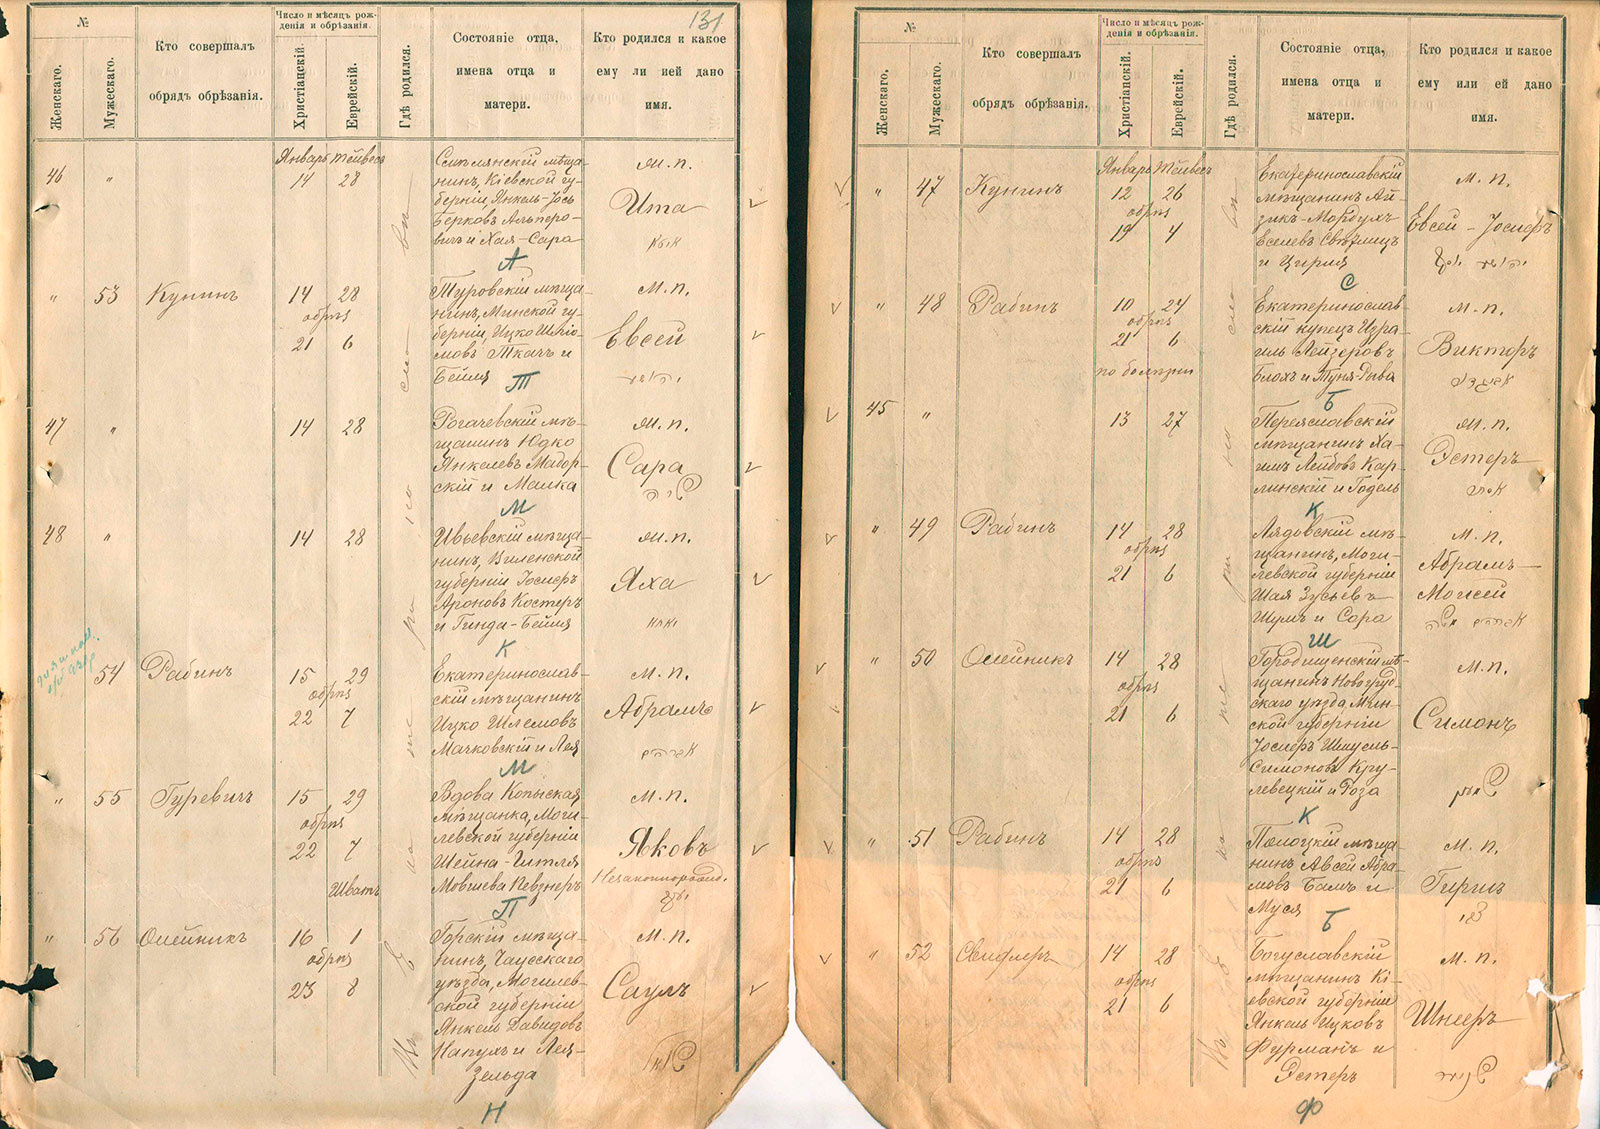 131
№
Женскаго.
Мужескаго.
Кто совершалъ
обрядъ обрѣзанія.
Число и мѣсяцъ рож-
денія и обрѣзанія.
Христіанскій.
Еврейскій.
Гдѣ родился.
Состояніе отца,
имена отца и
матери.
Кто родился и какое
ему ли ней дано
имя.
46 „
Январь Тейвесъ
14 28
Смѣлянскій мѣща-
нинъ, Кіевской гу-
берніи, Янкель-Іось
Берковъ Альперо-
вичъ и Хая-Сара
А
м. п.
Ита
„ 53 Кунинъ
14 28
обрѣз
21 6
Туровскій мѣща-
нинъ, Минской гу-
берніи, Ицко Шліо-
мовъ Ткачъ и
Бейля
Т
м. п.
Евсей
47 „
14 28
Рогачевскій мѣ-
щанинъ Юдко
Янкелевъ Мадор-
скій и Малка
М
м. п.
Сара
שרה
48 „
14 28
Ивьевскій мѣща-
нинъ, Виленской
губерніи Іосифъ
Ароновъ Костеръ
и Гинда-Бейля
К
м. п.
Яха
54 Рабинъ
15 29
обрѣз
22 7
Екатеринослав-
скій мѣщанинъ
Ицко Шлемовъ
Мачковскій и Лея
М
м. п.
Абрамъ
אברהם
„ 55 Гуревичъ
15 29
обрѣз
22 7
Шватъ
Вдова Копыская
мѣщанка, Моги-
левской губерніи
Шейна-Гитля
Мовшева Певзнеръ
П
м. п.
Яковъ
Незаконнорожд.
יעקב
„ 56 Олейникъ
16 1
обрѣз
23 8
Горскій мѣща-
нинъ, Чаусскаго
уѣзда, Могилев-
ской губерніи
Янкель Давидовъ
Напухъ и Лея-
Зельда
Н
м. п.
Саулъ
שאול
№
Женскаго.
Мужескаго.
Кто совершалъ
обрядъ обрѣзанія.
Число и мѣсяцъ рож-
денія и обрѣзанія.
Христіанскій.
Еврейскій.
Гдѣ родился.
Состояніе отца,
имена отца и
матери.
Кто родился и какое
ему или ей дано
имя.
„ 47 Кунинъ
Январь Тейвесъ
12 26
обрѣз
19 4
Екатеринославскій
мѣщанинъ Ай-
зикъ-Мордухъ
Еселевъ Свѣтлицъ
и Цирля
С
м. п.
Евсей-Іосифъ
„ 48 Рабинъ
10 24
обрѣз
21 6
по болѣзни
Екатеринослав-
скій купецъ Изра-
иль Лейзеровъ
Блохъ и Туня-Рива
Б
м. п.
Викторъ
45 „
13 27
Переяславскій
мѣщанинъ Ха-
имъ Лейбовъ Кар-
линскій и Годель
К
м. п.
Эстеръ
אסתר
„ 49 Рабинъ
14 28
обрѣз
21 6
Лядовскій мѣ-
щанинъ, Моги-
левской губерніи
Шая Зусьевъ
Шумъ и Сора
Ш
м. п.
Абрамъ-
Моисей
אברהם משה
„ 50 Олейникъ
14 28
обрѣз
21 6
Городищенскій мѣ-
щанинъ Новогруд-
скаго уѣзда, Мин-
ской губерніи
Іосифъ Шмуель-
Симоновъ Кру-
левецкій и Роза
К
м. п.
Симонъ
„ 51 Рабинъ
14 28
обрѣз
21 6
Полоцкій мѣща-
нинъ Авсей Абра-
мовъ Бамъ и
Муся
Б
м. п.
Гиршъ
צבי
„ 52 Свифлеръ
14 28
обрѣз
21 6
Богуславскій
мѣщанинъ Кі-
евской губерніи
Янкель Ицковъ
Фурманъ и
Эстеръ
Ф
м. п.
Шнееръ
שניאור